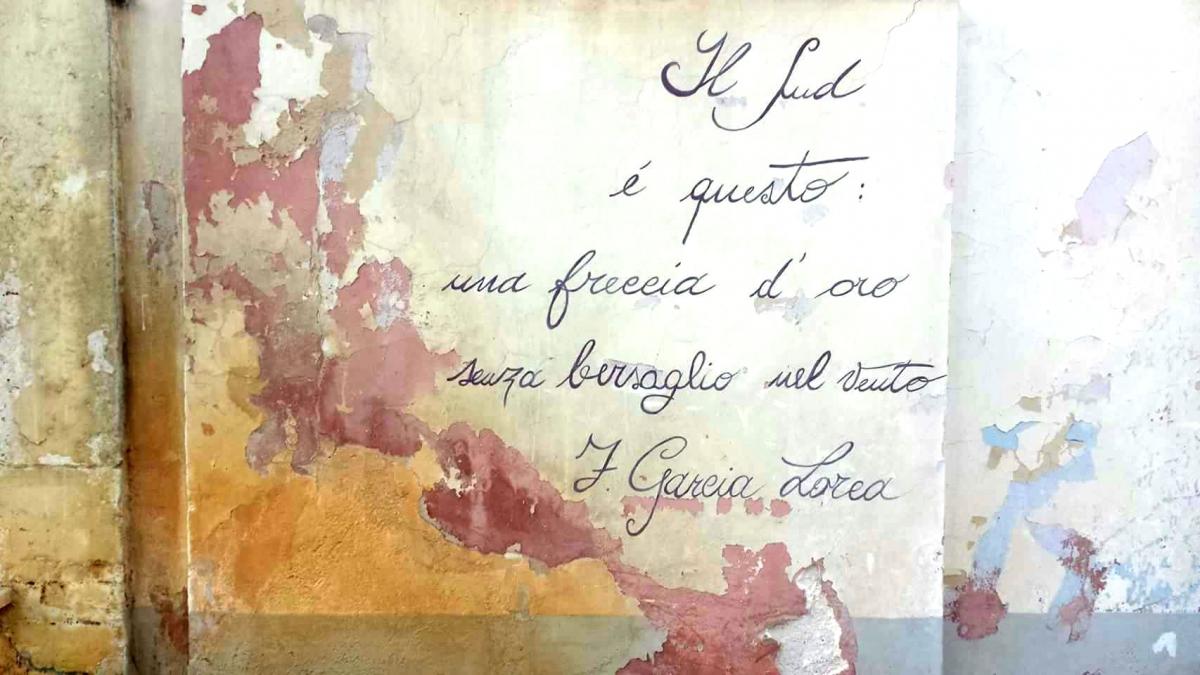 Il Sud
é questo:
una freccia d' oro
senza bersaglio nel vento
F. Garcia Lorca